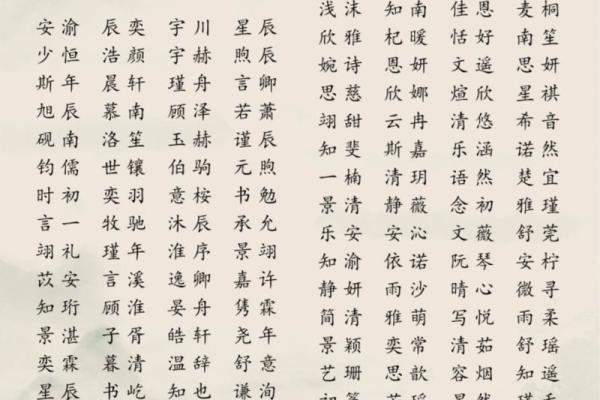 安渝 辰奕 宇川 星辰
少恒 浩颜 宇赫 煦辰
斯年 晨轩 瑾舟 言卿
旭辰 慕南 顾泽 若萧
砚南 洛笙 玉赫 谨辰
钧儒 世镶 伯驹 元煦
时初 奕羽 意桉 书勉
言一 牧驰 沐辰 承允
翊礼 瑾年 淮序 景翊
苡安 言溪 逸卿 嘉许
知珩 顾淮 晏舟 隽霖
景湛 子胥 皓轩 尧年
奕霖 暮清 温辞 舒意
星辰 书屹 知也 谦洵
浅沫 知南 佳恩 麦桐
欣雅 杞暖 恬好 南笙
婉诗 恩妍 文遥 思妍
思慈 欣娜 煊欣 星祺
翊甜 云冉 清悠 希音
知斐 斯嘉 乐涵 诺然
一楠 清玥 语然 楚宜
景清 静薇 念初 雅瑾
乐安 安沁 文薇 舒莞
知渝 依诺 阮琴 安柠
静妍 雨沙 晴心 微寻
简清 雅萌 写悦 雨柔
景颖 奕常 清茹 舒瑶
艺珊 思歆 容烟 知遥